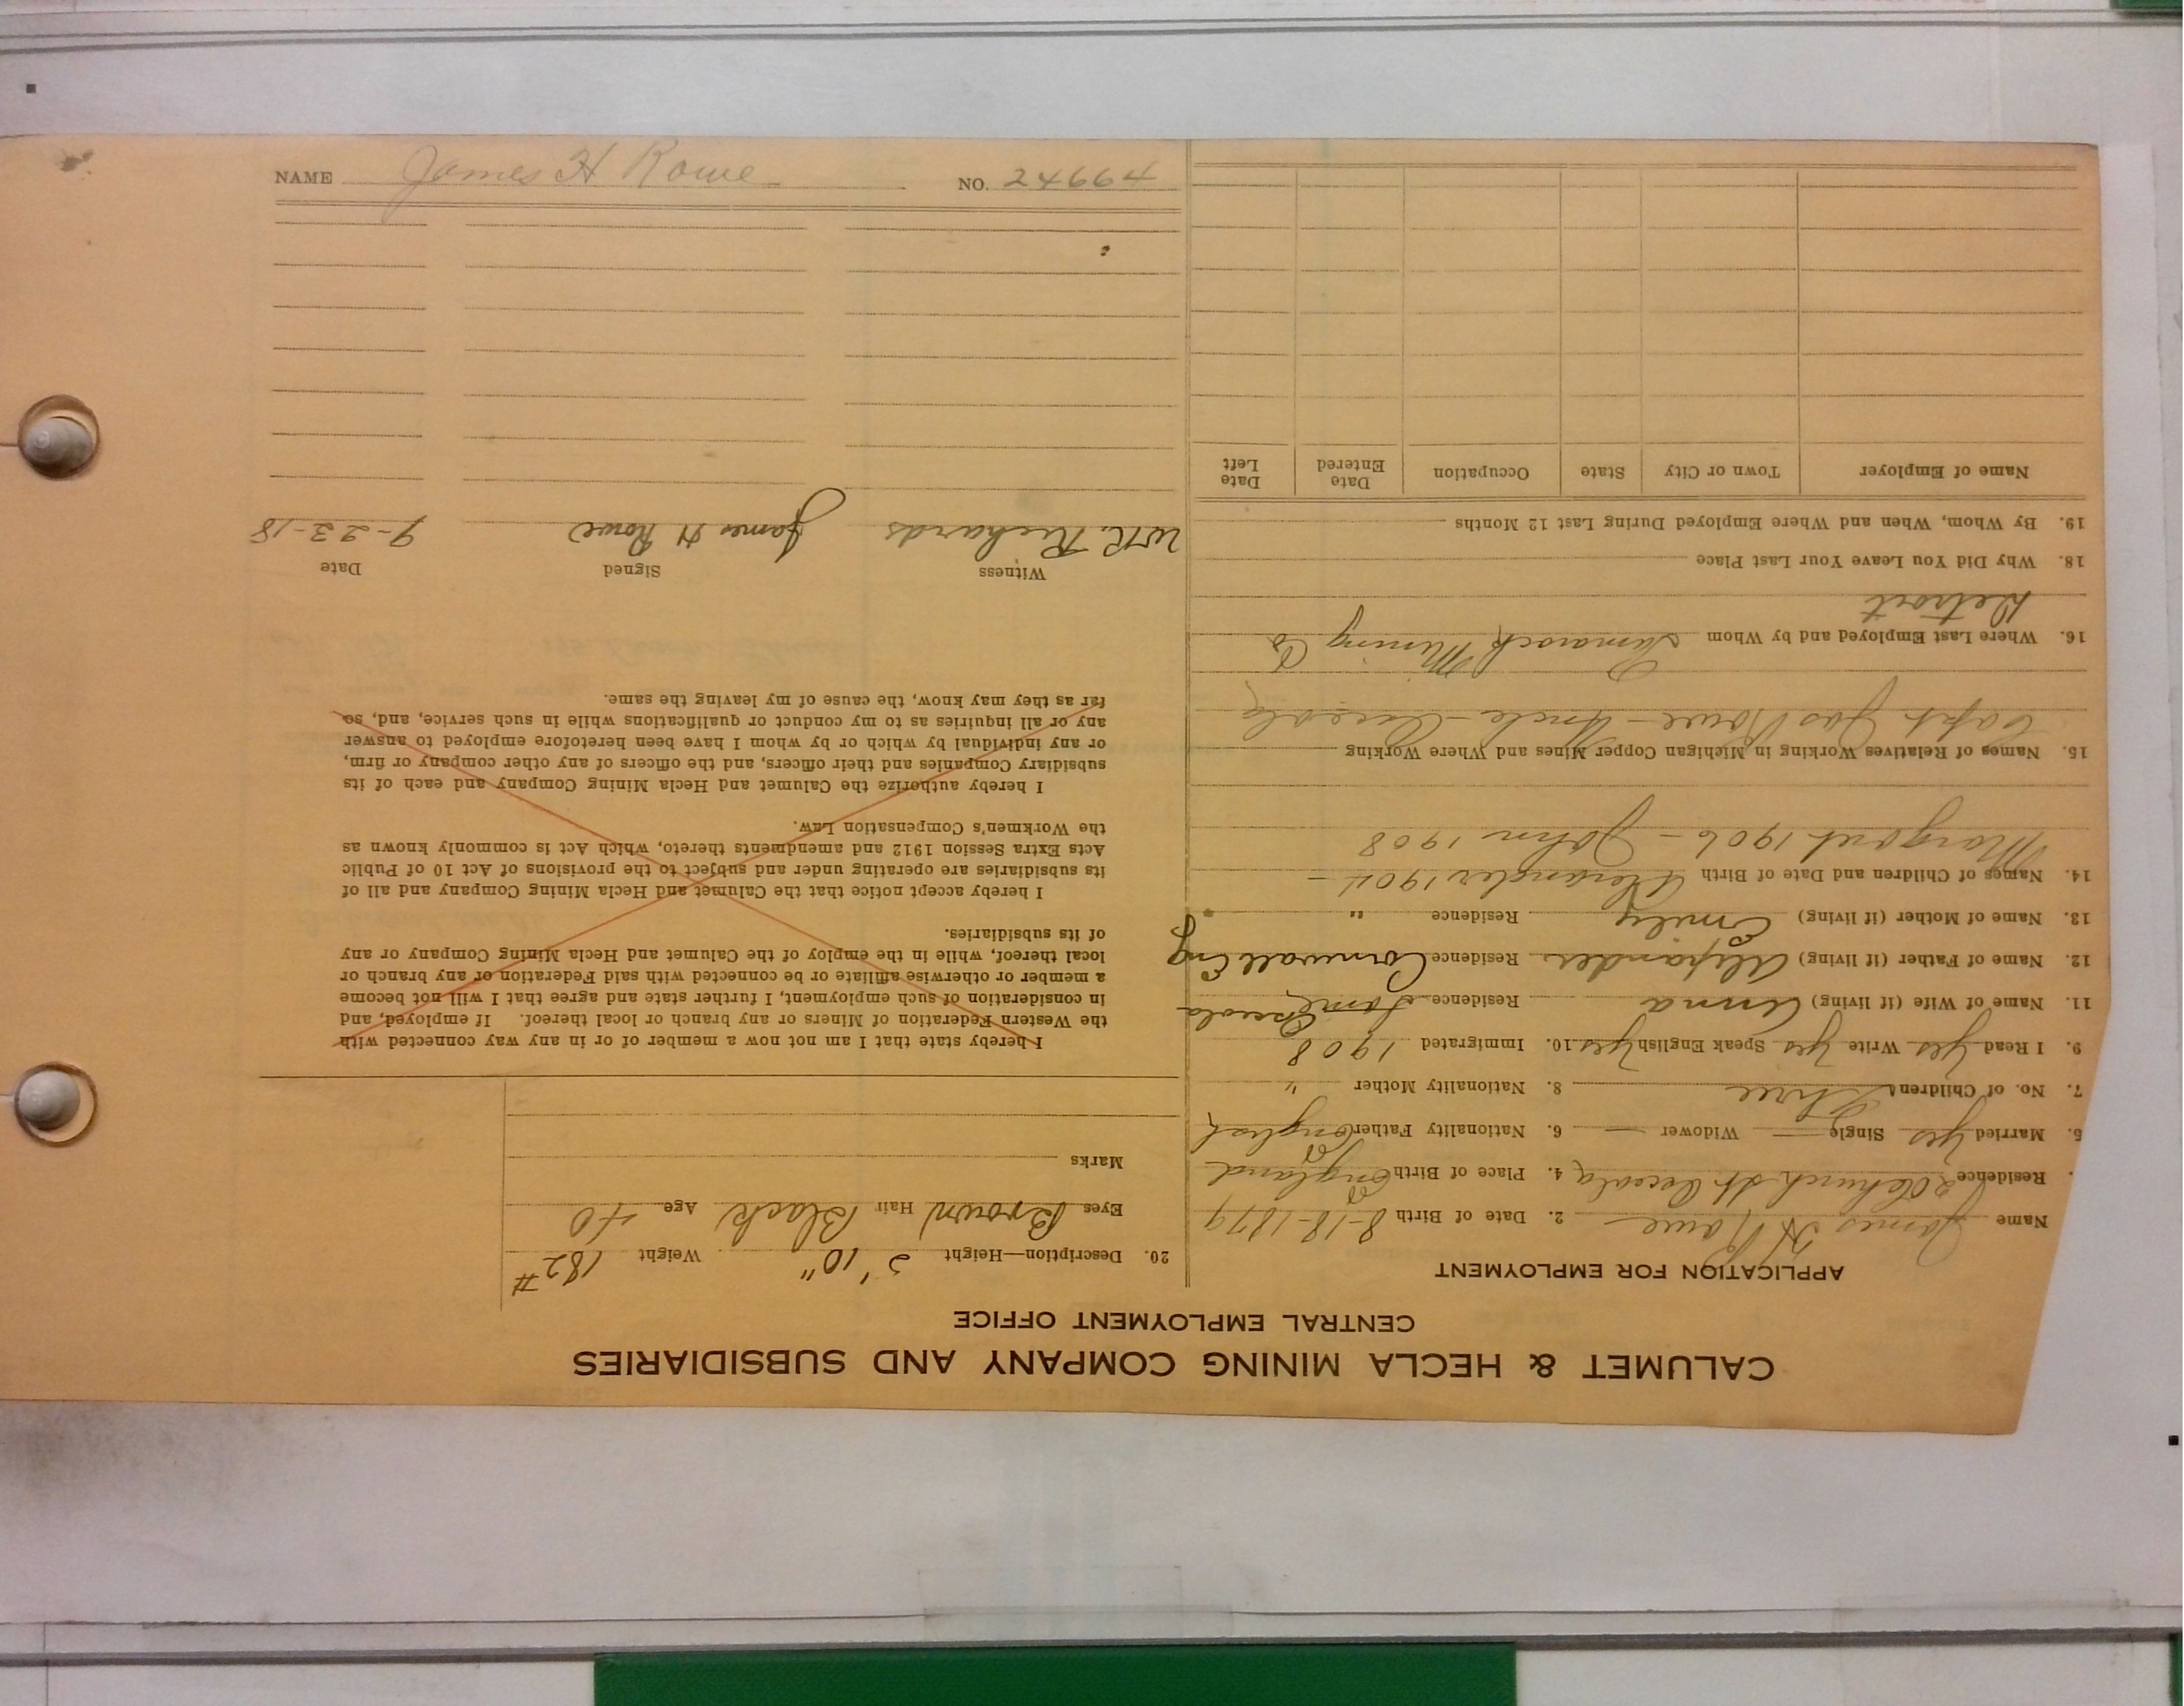 CALUMET & HECLA MINING COMPANY AND SUBSIDIARIES
CENTRAL EMPLOYMENT OFFICE
APPLICATION FOR EMPLOYMENT
Name James H Rowe 2. Date of Birth 8-18-1879
Residence 20 Church St Osceola 4. Place of Birth England
5. Married Yes Single — Widower — 6. Nationality Father English
7. No. of Children Three 8. Nationality Mother "
9. I Read Yes Write Yes Speak English Yes 10. Immigrated 1908
11. Name of Wife (if living) Anna Residence Same Osceola
12. Name of Father (if living) Alexander Residence Cornwall Eng
13. Name of Mother (if living) Emily Residence "
14. Names of Children and Date of Birth Alexander 1904 -
Margaret 1906 - John 1908
15. Names of Relatives Working in Michigan Copper Mines and Where Working
Capt Jas Rowe - Uncle - Osceola
16. Where Last Employed and by Whom Tamarack Mining Co
Detroit
18. Why Did You Leave Your Last Place
19. By Whom, When and Where Employed During Last 12 Months
Name of Employer Town or City State Occupation Date Entered Date Left
20. Description—Height 5' 10" Weight 182#
Eyes Brown Hair Black Age 40
Marks
I hereby state that I am not now a member of or in any way connected with
the Western Federation of Miners or any branch or local thereof. If employed, and
in consideration of such employment, I further state and agree that I will not become
a member or otherwise affiliate or be connected with said Federation or any branch or
local thereof, while in the employ of the Calumet and Hecla Mining Company or any
of its subsidiaries.
I hereby accept notice that the Calumet and Hecla Mining Company and all of
its subsidiaries are operating under and subject to the provisions of Act 10 of Public
Acts Extra Session 1912 and amendments thereto, which Act is commonly known as
the Workmen's Compensation Law.
I hereby authorize the Calumet and Hecla Mining Company and each of its
subsidiary Companies and their officers, and the officers of any other company or firm,
or any individual by which or by whom I have been heretofore employed to answer
any or all inquiries as to my conduct or qualifications while in such service, and, so
far as they may know, the cause of my leaving the same.
Witness Signed Date
W.R. Richards James H Rowe 9-23-18
NAME James H Rowe NO. 24664